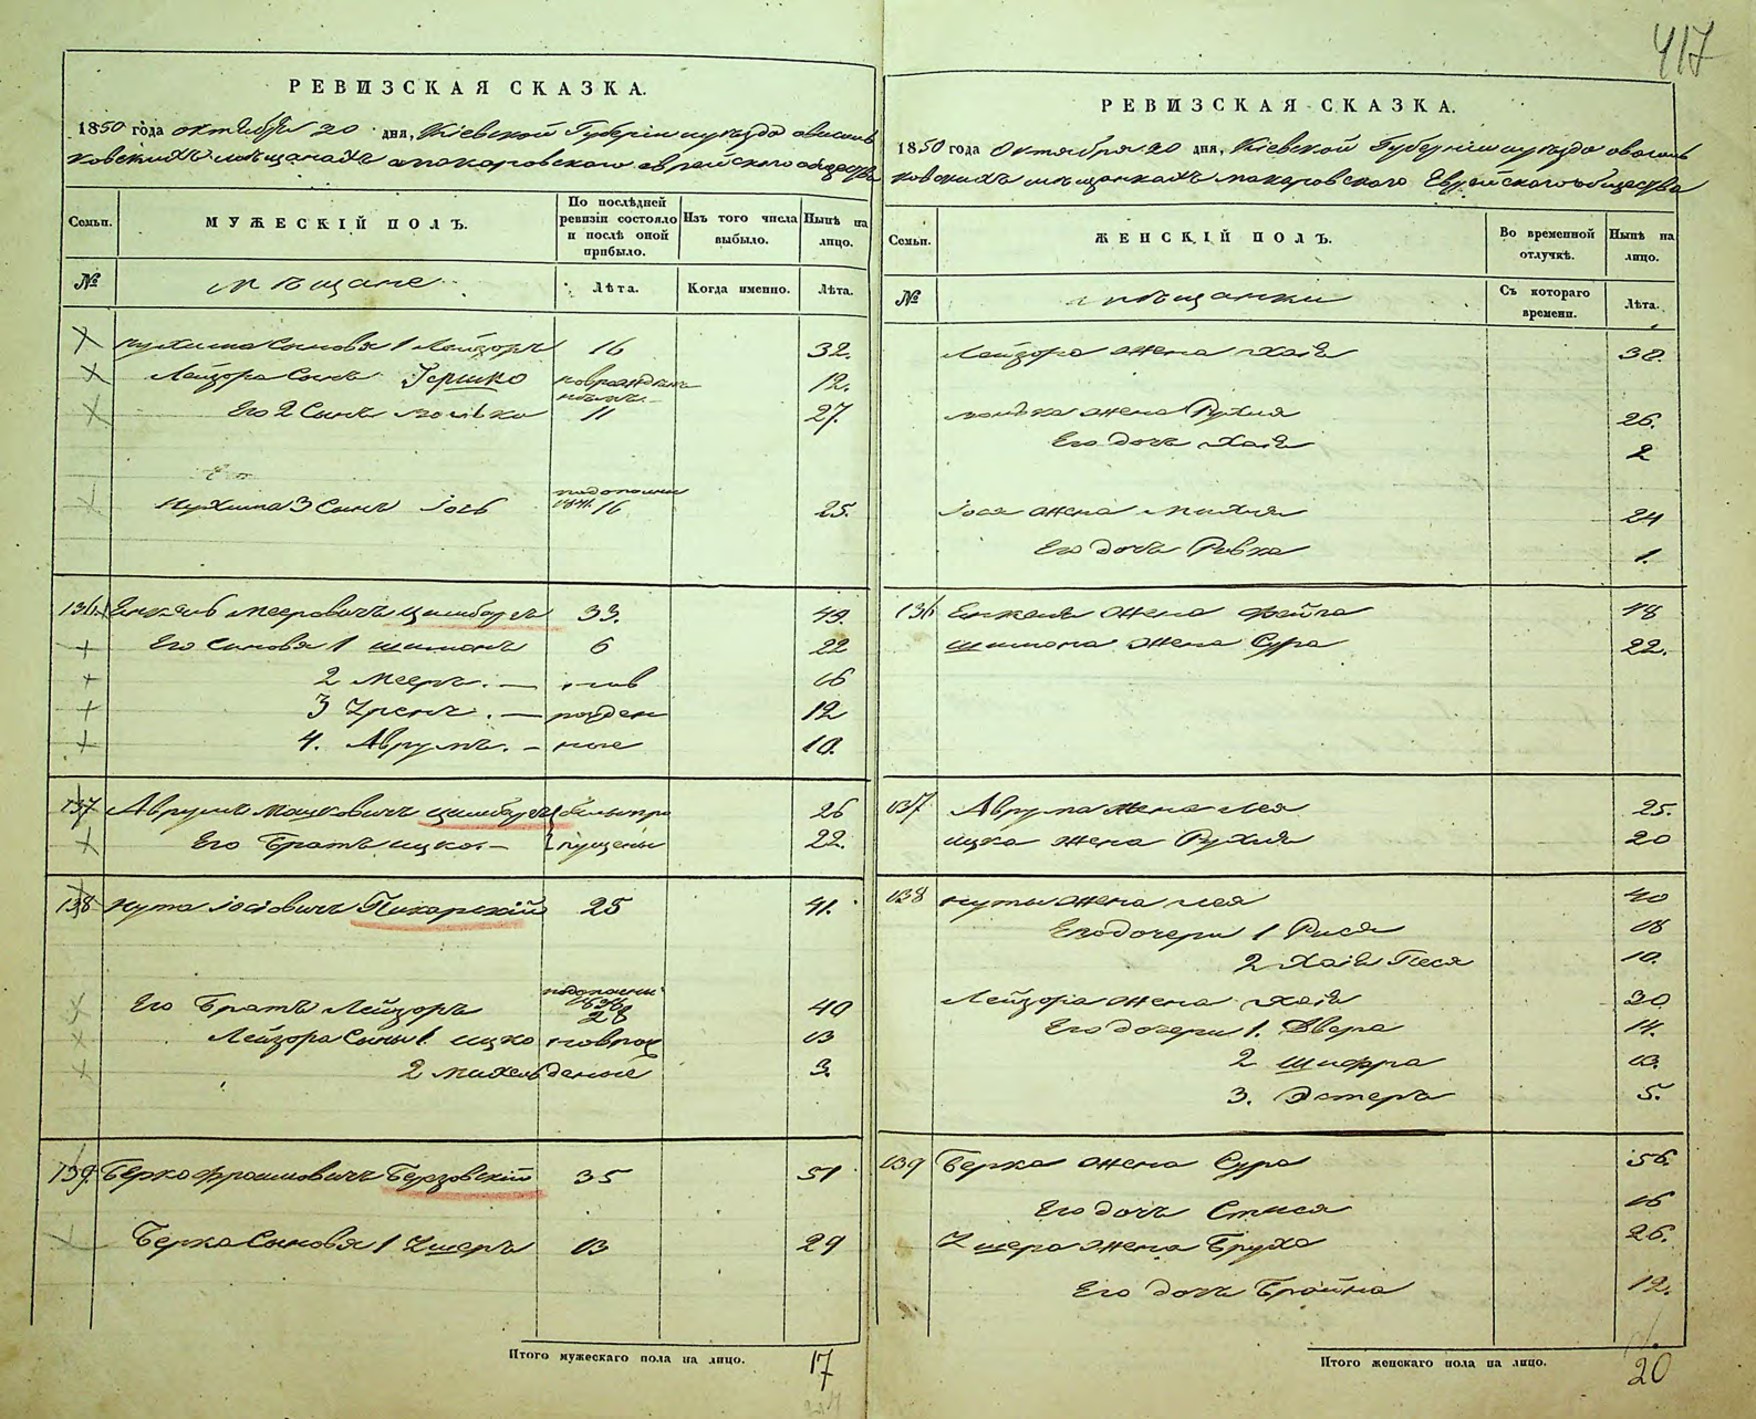 417
РЕВИЗСКАЯ СКАЗКА.
1850 года октября 20 дня, Кіевской Губерніи и уѣзда о василь
ковскихъ мѣщанахъ макаровского еврейского общества
Семьи.
МУЖЕСКІЙ ПОЛЪ.
По послѣдней ревизіи состояло и послѣ оной прибыло.
Изъ того числа выбыло.
Нынѣ на лицо.
№
мѣщане
Лѣта.
Когда именно.
Лѣта.
Нухима Сыновя 1 Лейзоръ 16 32.
Лейзора Сынъ Гершко новрожденъ 12.
Его 2 Сынъ Мошко 11 27.
Нухима 3 Сынъ Іось 16 25.
136 Енкель Мееровичъ Цимбаръ 33. 49.
Его Сыновя 1 Шимонъ 6 22
2 Мееръ. — нов 16
3 — рожден 12
4. Аврумъ. — ные 10.
137 Аврумъ Мошковичъ были про 26
Его Братъ Ицко. — пущены 22.
138 Нута Іосіовичъ Пикарскій 25 41.
Его Братъ Лейзоръ 28 40
Лейзора Сыны 1 Ицко новрож 13
2 Михель деные 3.
139 Берко Фроимовичъ Берзовскій 35 51
Берка Сыновя 1 13 29
Итого мужескаго пола на лицо. 17
РЕВИЗСКАЯ СКАЗКА.
1850 года Октября 20 дня, Кіевской Губерніи и уѣзда о василь
ковскихъ мѣщанкахъ макаровского Еврейского общества
Семьи.
ЖЕНСКІЙ ПОЛЪ.
Во временной отлучкѣ.
Нынѣ на лицо.
№
мѣщанки
Съ котораго времени.
Лѣта.
Лейзора жена Хаія 30.
Мошка жена Рухля 26.
Его дочь Хаія 2
Іося жена 24
Его дочь Ривка 1.
136 Енкеля жена Фейга 48
Шимона жена Сура 22.
137 Аврума жена Лея 25.
Ицка жена Рухля 20
138 Нуты жена Лея 40
Его дочери 1 Рися 18
2 Хаія Песя 10.
Лейзора жена Хаія 30
Его дочери 1. Двера 14.
2 Шифра 13.
3. Эстеръ 5.
139 Берка жена Сура 56.
Его дочь 16
жена Бруха 26.
Его дочь Брайна 12.
Итого женскаго пола на лицо. 20